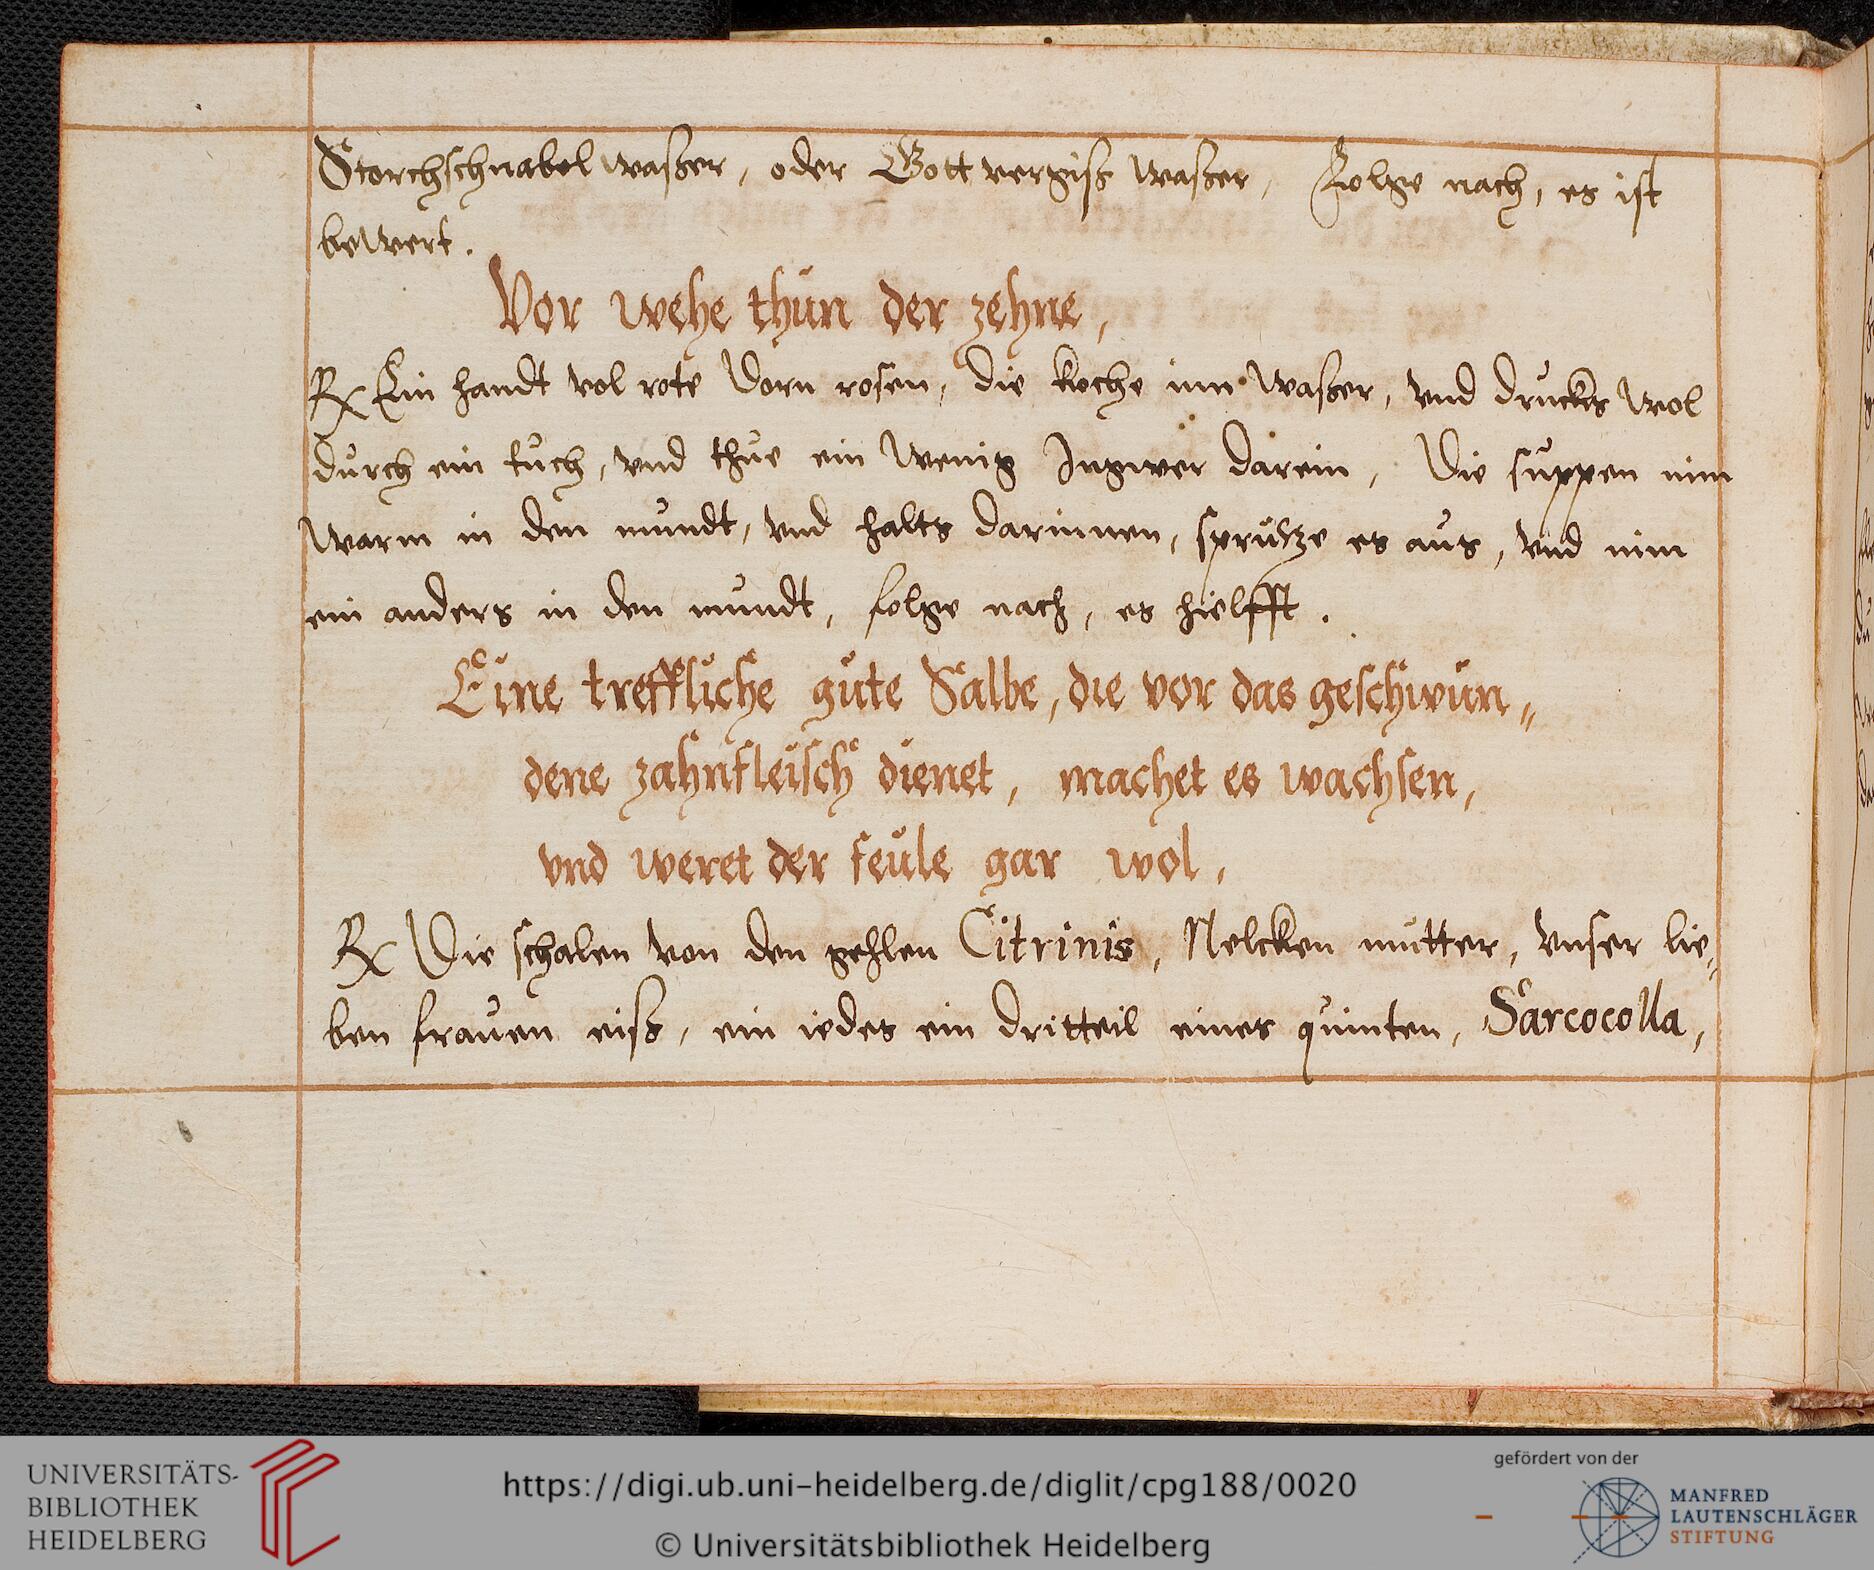 Storchschnabel waßer, oder Gott vergiß waßer, Folge nach, es ist
bewert.
Vor wehe thun der zehne,
℞ Ein handt vol rote Dorn rosen, die koche inn waßer, vnd druckes wol
durch ein tuch, vnd thue ein wenig Ingwer darein, Die suppen nim
warm in den mundt, vnd halts darinnen, sprutze es aus, vnd nim
ein anders in den mundt, folge nach, es hielfft.
Eine treffliche gute Salbe, die vor das geschwun„
dene zahnfleisch dienet, machet es wachsen,
vnd weret der feule gar wol,
℞ Die schalen von den gehlen Citrinis, Nelcken mutter, vnser lie„
ben frauen eiß, ein iedes ein dritteil eines quinten, Sarcocolla,
UNIVERSITÄTS-
BIBLIOTHEK
HEIDELBERG
https://digi.ub.uni-heidelberg.de/diglit/cpg188/0020
© Universitätsbibliothek Heidelberg
gefördert von der
MANFRED
LAUTENSCHLÄGER
STIFTUNG